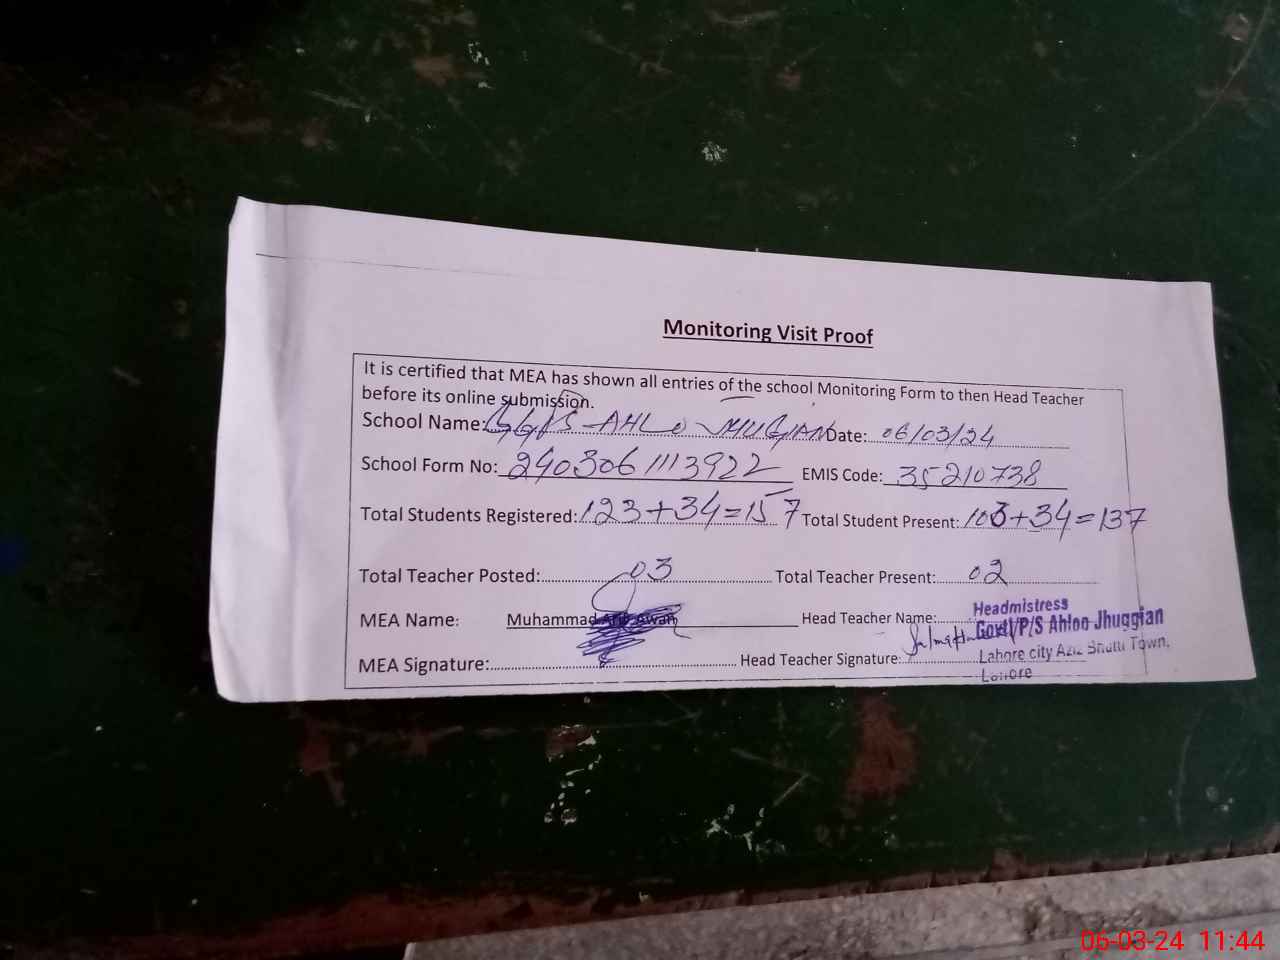 Monitoring Visit Proof
It is certified that MEA has shown all entries of the school Monitoring Form to then Head Teacher
before its online submission.
School Name: GGPS AHLO JHUGIAN Date: 06/03/24
School Form No: 2403061113922 EMIS Code: 35210738
Total Students Registered: 123+34=157 Total Student Present: 103+34=137
Total Teacher Posted: 03 Total Teacher Present: 02
MEA Name: Muhammad Awan Head Teacher Name:
Headmistress
Govt P/S Ahloo Jhuggian
MEA Signature: Head Teacher Signature:
Lahore city Aziz Bhatti Town,
Lahore
06-03-24 11:44